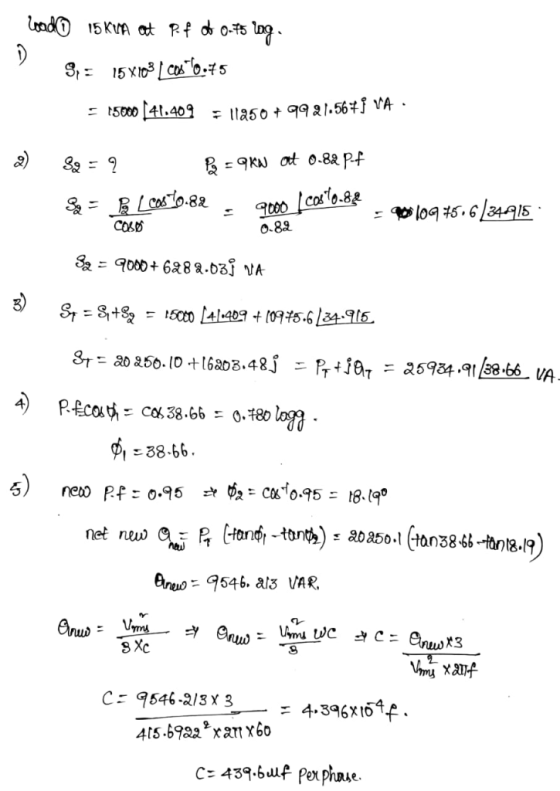 Load① 15KVA at P.f of 0.75 lag.
1) S₁ = 15×10³∠cos⁻¹0.75
= 15000∠41.409 = 11250 + 9921.567j VA.
2) S₂ = ? P₂ = 9KW at 0.82 P.f
S₂ = P₂∠cos⁻¹0.82 / cosϕ = 9000∠cos⁻¹0.82 / 0.82 = 10975.6∠34.915
S₂ = 9000 + 6282.03j VA
3) S_T = S₁+S₂ = 15000∠41.409 + 10975.6∠34.915
S_T = 20250.10 + 16203.48j = P_T + jQ_T = 25934.91∠38.66 VA.
4) P.f cosϕ₁ = cos 38.66 = 0.780 lagg.
ϕ₁ = 38.66.
5) new P.f = 0.95 ⇒ ϕ₂ = cos⁻¹0.95 = 18.19°
net new Q_new = P_T (tanϕ₁ - tanϕ₂) = 20250.1 (tan38.66 - tan18.19)
Qnew = 9546.213 VAR.
Qnew = V²rms / 3Xc ⇒ Qnew = V²rms ωC / 3 ⇒ C = Qnew×3 / V²rms × 2πf
C = 9546.213 × 3 / 415.6922² × 2π × 60 = 4.396×10⁻⁴f.
C = 439.6uf Per phase.